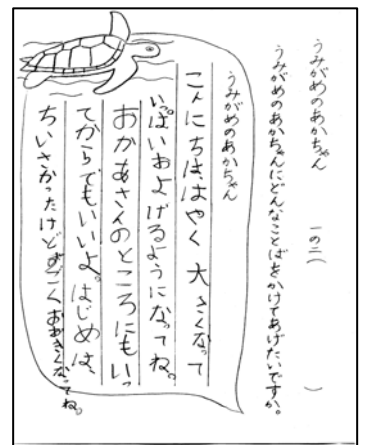 うみがめのあかちゃん　一の二（　　　）
うみがめのあかちゃんにどんなことばをかけてあげたいですか。
うみがめのあかちゃん
こんにちは、はやく大きくなって
いっぱいおよげるようになってね。
おかあさんのところにもいっ
てからでもいいよ。はじめは、
ちいさかったけどすごくおおきくなってね。